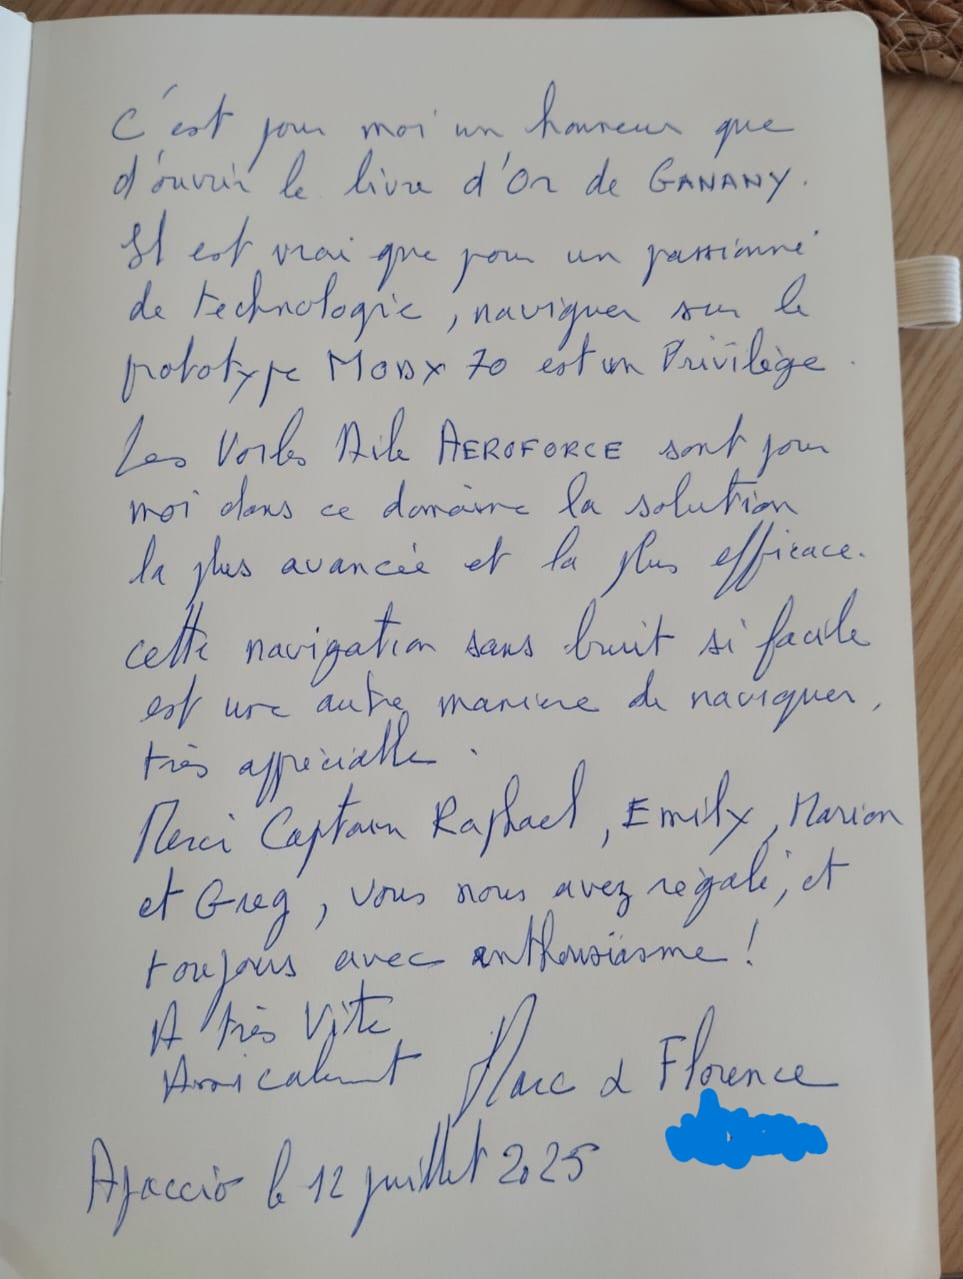 C'est pour moi un honneur que
d'ouvrir le livre d'Or de GANANY.
Il est vrai que pour un passionné
de technologie, naviguer sur le
prototype MODX 70 est un Privilège.
Les Voiles Aile AEROFORCE sont pour
moi dans ce domaine la solution
la plus avancée et la plus efficace.
cette navigation sans bruit si facile
est une autre manière de naviguer,
très appréciable.
Merci Captain Raphael, Emily, Marion
et Greg, vous nous avez régalé, et
toujours avec enthousiasme !
A très Vite
Amicalement Marc & Florence
Ajaccio le 12 juillet 2025